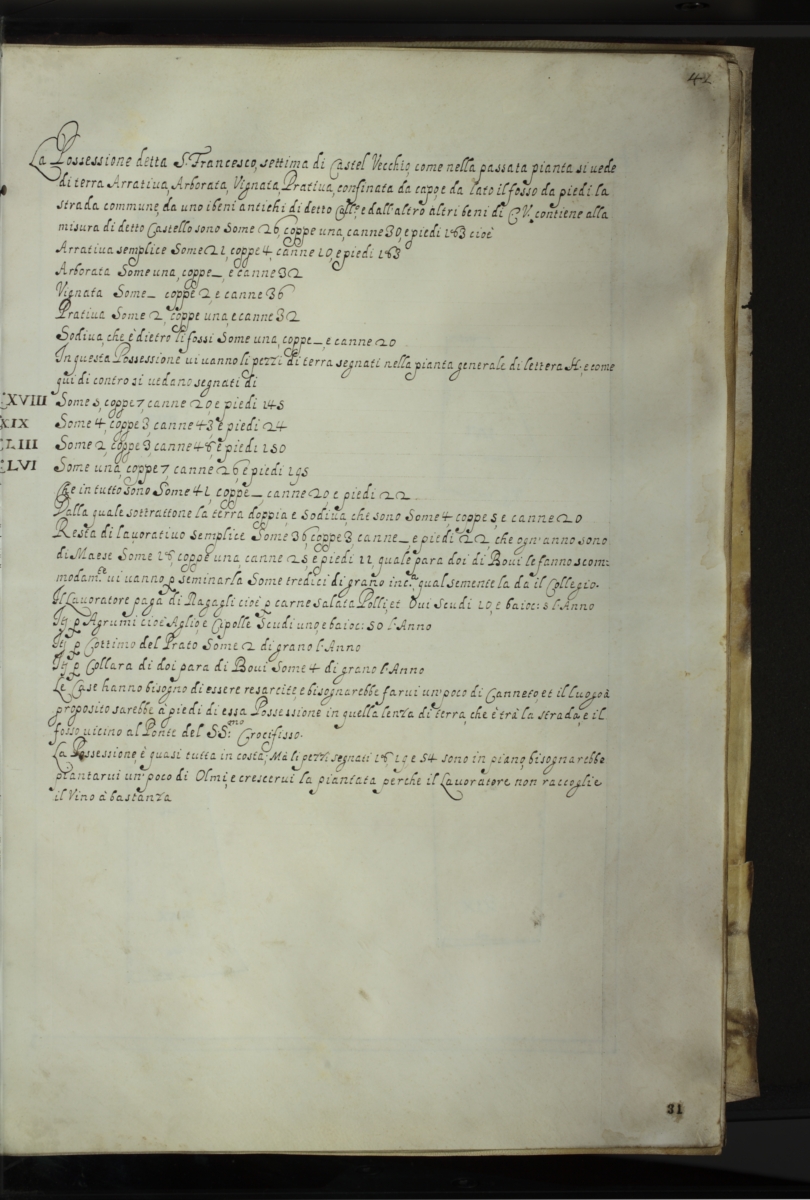 42
La Possessione detta S. Francesco, settima di Castel Vecchio, come nella passata pianta si uede
di terra Arratiua, Arborata, Vignata, Pratiua, confinata da capo, e da lato il fosso da piedi la
strada commune, da uno i beni antichi di detto Coll.º e dall'altro altri beni di C.V. contiene alla
misura di detto Castello sono Some 26, coppe una, canne 30, e piedi 163 cioè
Arratiua semplice Some 21, coppe 4, canne 10, e piedi 163
Arborata Some una, coppe _, e canne 32
Vignata Some _ coppe 2, e canne 36
Pratiua Some 2, coppe una, e canne 32
Sodiua, che è dietro li fossi Some una, coppe _ e canne 20
In questa Possessione ui uanno li pezzi di terra segnati nella pianta generale di lettera H; e come
qui di contro si uedano segnati di
XVIII Some 5, coppe 7, canne 20 e piedi 145
XIX Some 4, coppe 3, canne 43, e piedi 24
LIII Some 2, coppe 3, canne 46, e piedi 150
LVI Some una, coppe 7 canne 26, e piedi 195
Che in tutto sono Some 41, coppe _, canne 20 e piedi 22
Dalla quale sottrattone la terra doppia, e Sodiua, che sono Some 4 coppe 5 e canne 20
Resta di lauoratiuo semplice Some 36, coppe 3, canne _ e piedi 22, che ogn'anno sono
di Maese Some 16, coppe una, canne 25, e piedi 11, quale para doi di Boui le fanno scom:
modam.te ui uanno p seminarla Some tredici di grano inc.a qual semente la da il Collegio.
Il Lauoratore paga di Ragagli cioè p carne salata Polli, et Oui Scudi 10, e baioc: 5 l'Anno
It; p Agrumi cioè Aglio, e Cipolle Scudi uno, e baioc: 50 l'Anno
It; p Cottimo del Prato Some 2 di grano l'Anno
It; p Collara di doi para di Boui Some 4 di grano l'Anno
Le Case hanno bisogno di essere resarcite, e bisognarebbe farui un poco di Canneto, et il luogo à
proposito sarebbe à piedi di essa Possessione in quella lenza di terra, che è trà la strada, e il
fosso uicino al Ponte del SS.mo Crocifisso.
La Possessione, è quasi tutta in costa, Mà li pezzi segnati 16 19 e 54 sono in piano, bisognarebbe
piantarui un poco di Olmi, e crescerui la piantata perche il Lauoratore non raccoglie
il Vino à bastanza
31